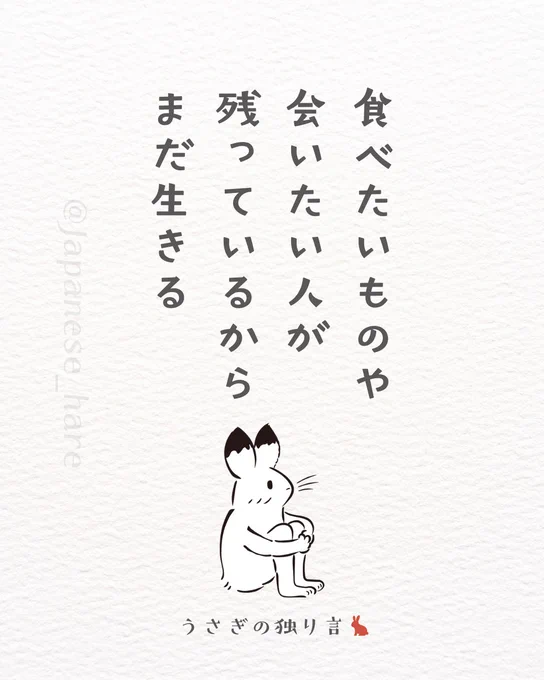 食べたいものや
会いたい人が
残っているから
まだ生きる
@Japanese_hare
うさぎの独り言